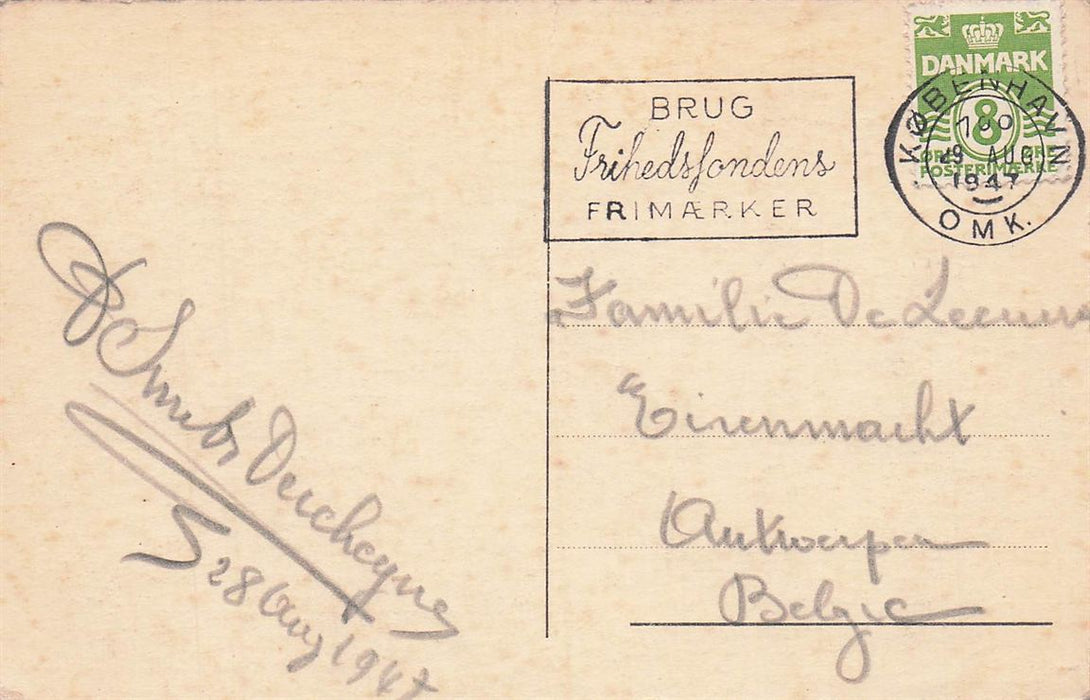 DANMARK
8
ØRE ØRE
POSTFRIMÆRKE
KØBENHAVN
29 AUG.
1947
OMK.
BRUG
Frihedsfondens
FRIMÆRKER
Familie De Leeuw
Eisenmarkt
Antwerpen
Belgie
Smets
28 Aug 1947